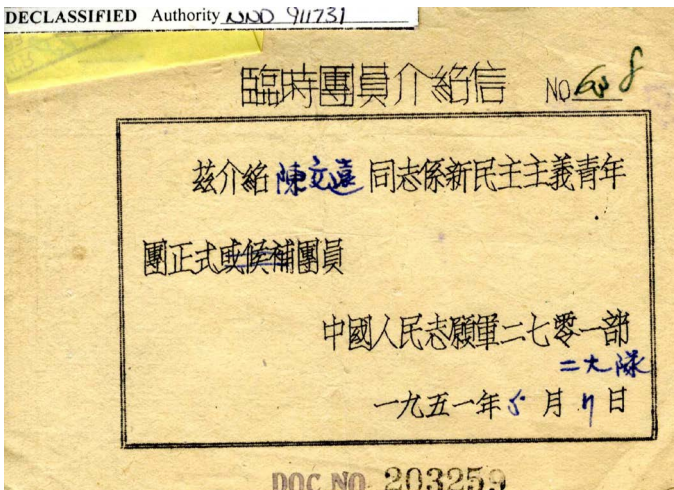 DECLASSIFIED Authority NND 911731
臨時團員介紹信 NO
茲介紹陳文遠同志係新民主主義青年
團正式或候補團員
中國人民志願軍二七零一部
二大隊
一九五一年5月11日
DOC NO. 203259